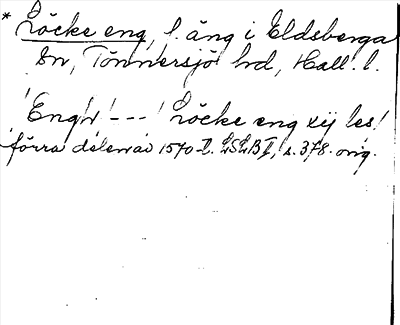 * Löcke eng, f. äng i Eldsberga
sn, Tönnersjö hd, Hall. l.
"Engh" --- "Löcke eng xij les"
förra delen av 1570-t. LSLB II, s. 378. orig.